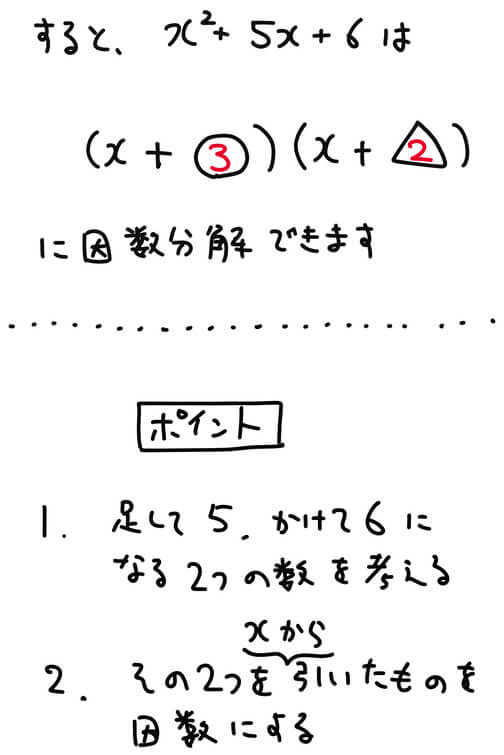 すると、x²+ 5x + 6 は
(x + 3)(x + 2)
に因数分解できます
ポイント
1. 足して 5. かけて 6 に
なる 2つの数を考える
xから
2. その2つを引いたものを
因数にする